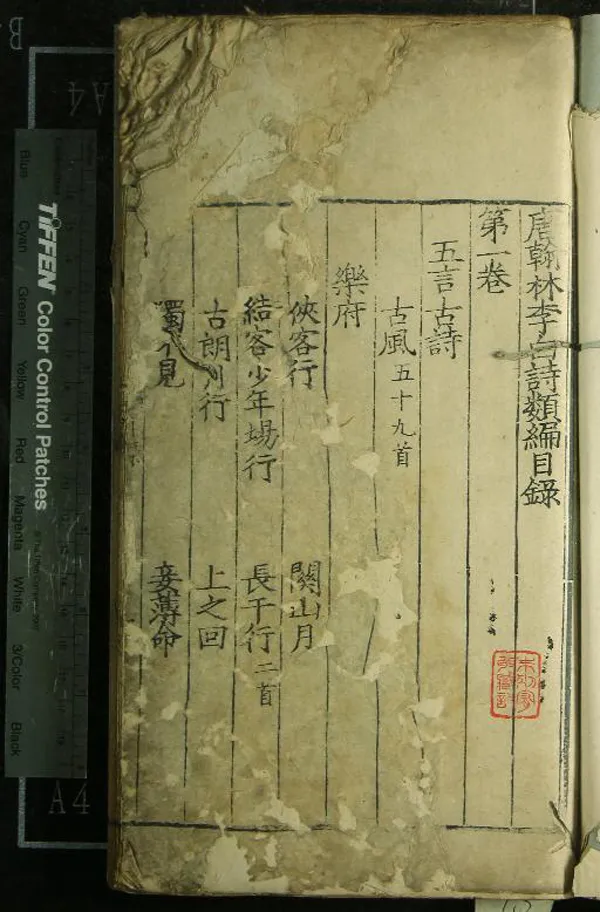 唐翰林李白詩類編目錄
第一卷
五言古詩
古風五十九首
樂府
俠客行 關山月
結客少年場行 長干行二首
古朗月行 上之回
獨不見 妾薄命
TIFFEN Color Control Patches
Blue Cyan Green Yellow Red Magenta White 3/Color Black
A4
A4
B